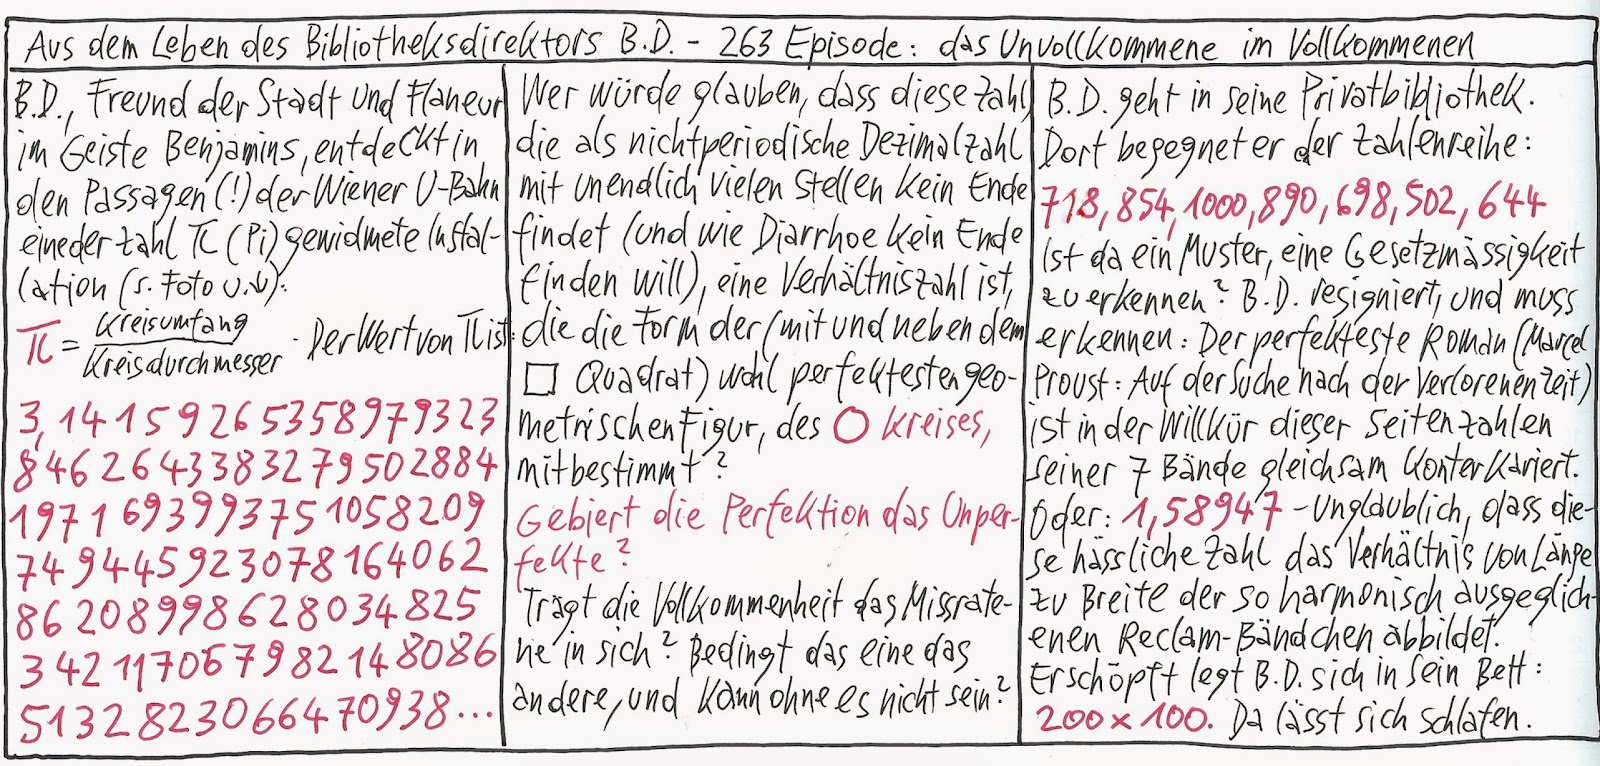 Aus dem Leben des Bibliotheksdirektors B.D. - 263 Episode: das Unvollkommene im Vollkommenen
B.D., Freund der Stadt und Flaneur
im Geiste Benjamins, entdeckt in
den Passagen (!) der Wiener U-Bahn
eine der Zahl π (Pi) gewidmete Instal-
lation (s. Foto u.↓).
π = Kreisumfang / Kreisdurchmesser . Der Wert von π ist:
3,14159265358979323
846264338327950288 4
1971693993751058209
749445923078164062
862089986280 34825
342117067982148086
5132823066470938...
Wer würde glauben, dass diese Zahl,
die als nichtperiodische Dezimalzahl
mit unendlich vielen Stellen kein Ende
findet (und wie Diarrhoe kein Ende
finden will), eine Verhältniszahl ist,
die die Form der (mit und neben dem
□ Quadrat) wohl perfektesten geo-
metrischen Figur, des O Kreises,
mitbestimmt?
Gebiert die Perfektion das Unper-
fekte?
Trägt die Vollkommenheit das Missrate-
ne in sich? Bedingt das eine das
andere, und kann ohne es nicht sein?
B.D. geht in seine Privatbibliothek.
Dort begegnet er der Zahlenreihe:
718, 854, 1000, 890, 698, 502, 644
Ist da ein Muster, eine Gesetzmässigkeit
zu erkennen? B.D. resigniert, und muss
erkennen: Der perfekteste Roman (Marcel
Proust: Auf der Suche nach der verlorenen Zeit)
ist in der Willkür dieser Seitenzahlen
seiner 7 Bände gleichsam konterkariert.
Oder: 1,58947 - Unglaublich, dass die-
se hässliche Zahl das Verhältnis von Länge
zu Breite der so harmonisch ausgeglich-
enen Reclam-Bändchen abbildet.
Erschöpft legt B.D. sich in sein Bett:
200 x 100. Da lässt sich schlafen.